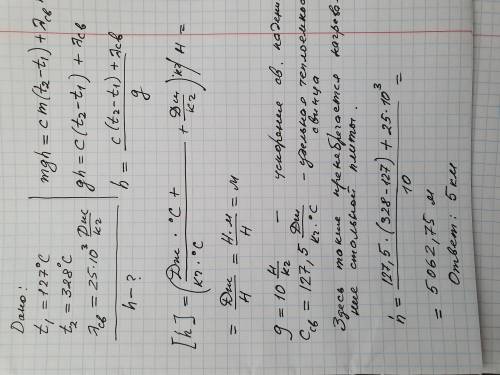 Дано:
t₁ = 127°C
t₂ = 328°C
λсв = 25·10³ Дж/кг
h — ?
mgh = cm(t₂-t₁) + λсв
gh = c(t₂-t₁) + λсв
h = (c(t₂-t₁) + λсв)/g
[h] = (Дж·°C/кг·°C + Дж/кг)·кг/H =
= Дж/H = H·м/H = м
g = 10 H/кг — ускорение св. падени
Cсв = 127,5 Дж/кг·°C - удельная теплоемкос
свинца
Здесь также пренебрегается нагрева-
ние стальной плиты.
h = (127,5·(328-127) + 25·10³)/10 =
= 5062,75 м
Ответ: 5 км